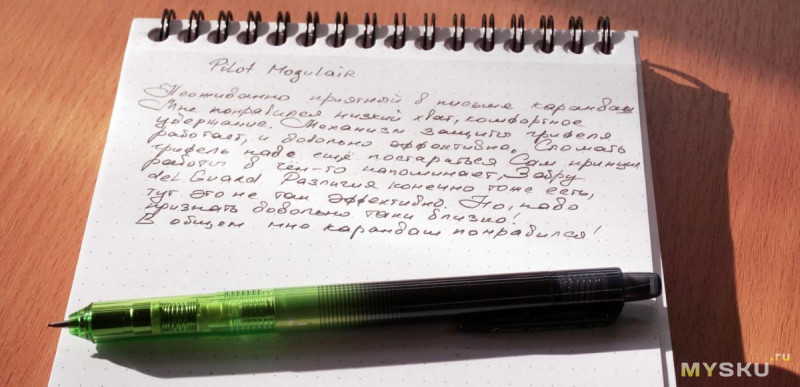 Pilot Mogulair
Неожиданно приятный в письме карандаш
Мне понравился низкий хват, комфортное
удержание. Механизм защиты грифеля
работает, и довольно эффективно. Сломать
грифель надо ещё постараться Сам принцип
работы в чём-то напоминает, Зебру
del Guard. Различия конечно тоже есть,
тут это не так эффективно. Но, надо
признать довольно таки близко!
В общем мне карандаш понравился!
MYSKU.ru